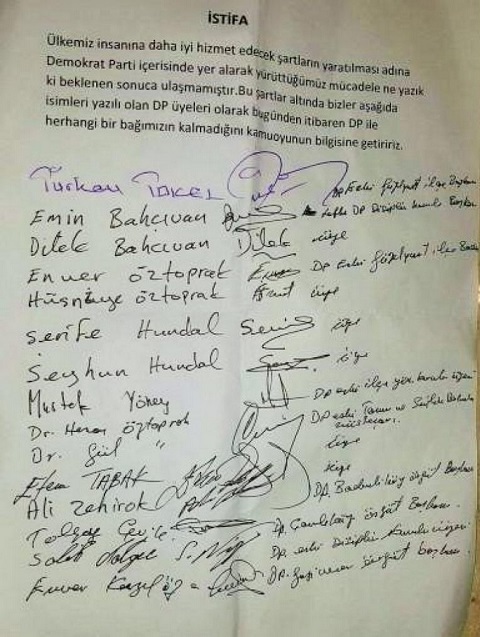 İSTİFA
Ülkemiz insanına daha iyi hizmet edecek şartların yaratılması adına
Demokrat Parti içerisinde yer alarak yürüttüğümüz mücadele ne yazık
ki beklenen sonuca ulaşmamıştır.Bu şartlar altında bizler aşağıda
isimleri yazılı olan DP üyeleri olarak bugünden itibaren DP ile
herhangi bir bağımızın kalmadığını kamuoyunun bilgisine getiririz.
Türkan TOKEL DP Eski Güzelyurt ilçe Başkanı
Emin Bahçıvan DP Disiplin Kurulu Başkanı
Dilek Bahcıvan Dilek üye
Enver Öztoprak DP Eski Güzelyurt ilçe
Hüsniye Öztoprak üye
Şerife Hundal üye
Seyhun Hundal üye
Mustafa DP eski ilçe yön. kurulu üyesi
Dr. Hasan Öztoprak DP eski Tarım ve
Dr. Gül " üye
Efem TABAK üye
Ali Zehirok DP. örgüt Başkanı
Tolgay DP. örgüt Başkanı.
DP. eski Disiplin Kurulu üyesi
Enver DP. örgüt başkanı.